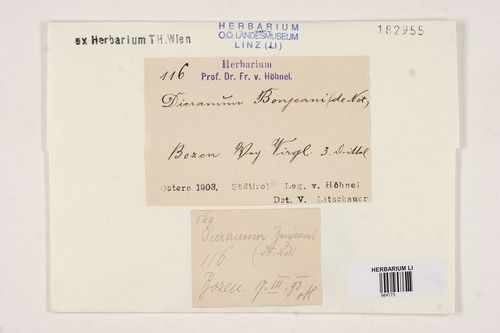 HERBARIUM
O.Ö. LANDESMUSEUM
LINZ (LI)
ex Herbarium TH.Wien
182955
Herbarium
116 Prof. Dr. Fr. v. Höhnel.
Dicranum Bonjeani (de Not)
Bozen Weg Virgl. 3. Drittel
Ostern 1903. Südtirol Leg. v. Höhnel
Det. V. Litschauer
569
Dicranum Bonjeani
116 (de Not)
Bozen. 17. III. 93
HERBARIUM LI